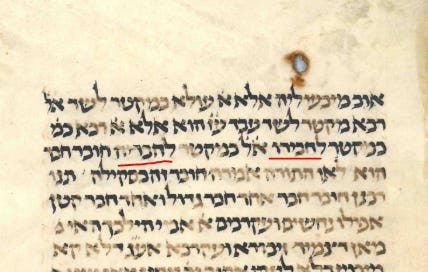 אוב מיבעי ליה אלא א עולא במקטר לשד אל
רבא מקטר לשד עבד עז הוא אלא א רבא כמ
במקטר לחבירו אל במקטר לחברה חובר חבר
הוא לאו התורה אמרה חובר והבסקילה תנו
רבנן חובר חבר אחד חבר גדול ואחד חבר קטן
אפילו נחשים ועקרבים א אביי הילכך האי מ
מאן דצמיד זיבורא ועקרבא אעג דלא קא